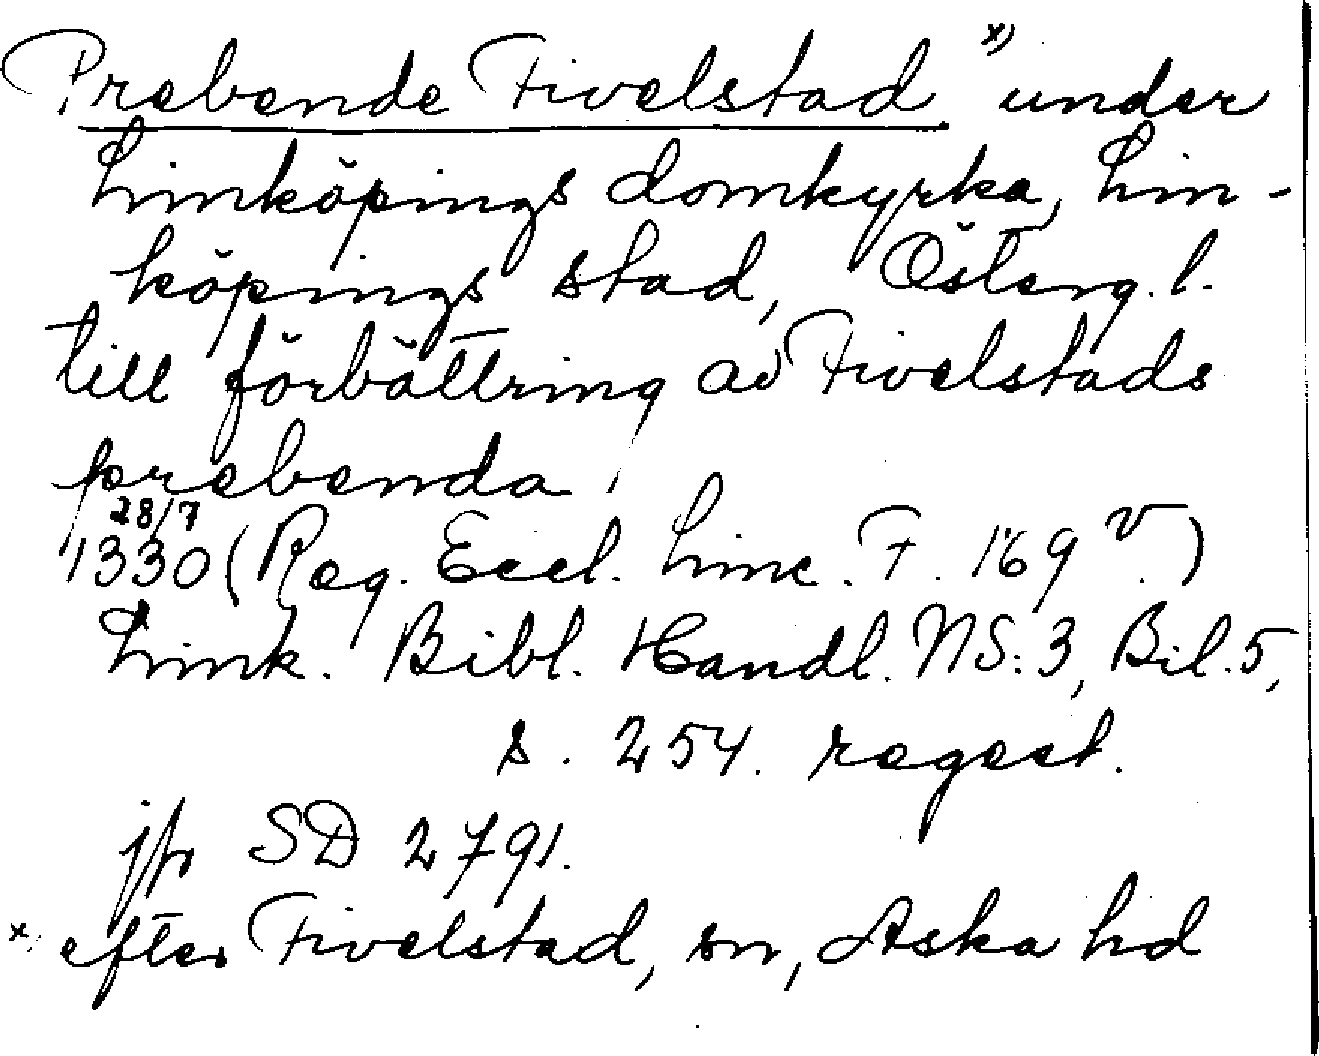 Prebende Fivelstad x) under
Linköpings domkyrka, Lin-
köpings stad, Österg. l.
till förbättring av Fivelstads
prebenda
28/7
1330 (Reg. Eccl. Linc. F. 169 v.)
Link. Bibl. Handl. NS: 3, Bil. 5,
s. 254. regest.
jfr SD 2791.
x) efter Fivelstad, sn, Aska hd